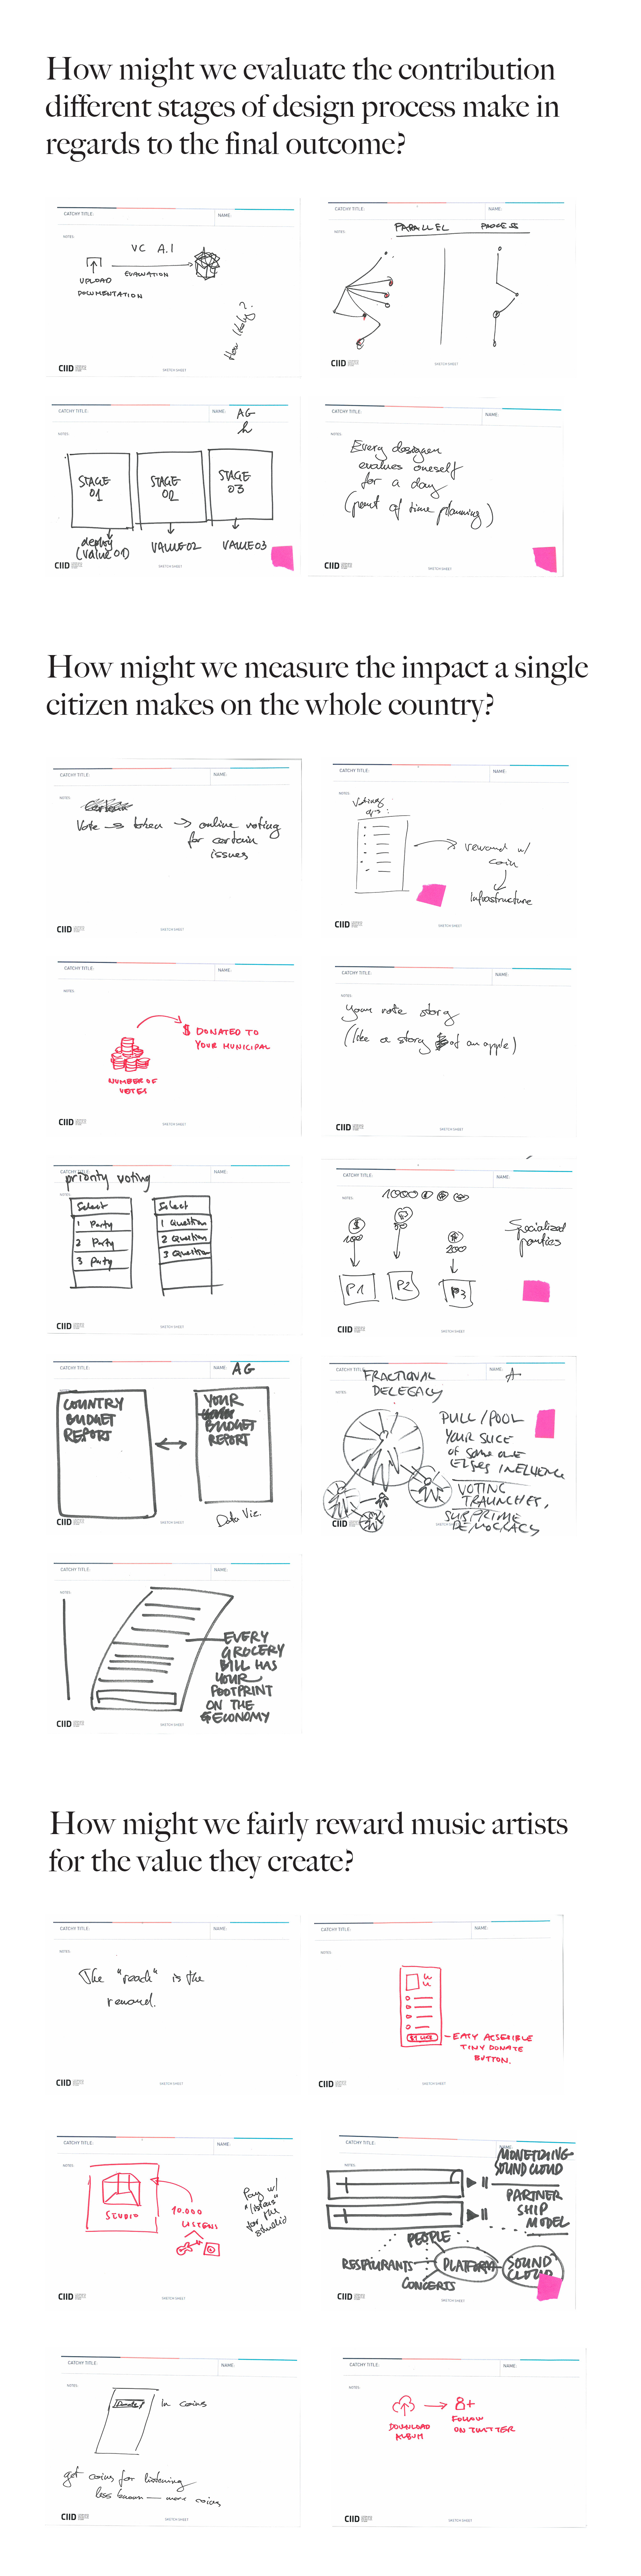 How might we evaluate the contribution
different stages of design process make in
regards to the final outcome?
CATCHY TITLE:
NAME:
NOTES:
VC A.I
EVALUATION
UPLOAD
DOCUMENTATION
How likely?
CIID
SKETCH SHEET
CATCHY TITLE:
NAME:
NOTES:
PARALLEL
PROCESS
CIID
SKETCH SHEET
CATCHY TITLE:
NAME:
AG
NOTES:
STAGE
01
STAGE
02
STAGE
03
deploy
(value 01)
VALUE02
VALUE03
CIID
SKETCH SHEET
CATCHY TITLE:
NAME:
NOTES:
Every designer
evalues oneself
for a day
(point of time planning)
CIID
SKETCH SHEET
How might we measure the impact a single
citizen makes on the whole country?
CATCHY TITLE:
NAME:
NOTES:
Vote → token → online voting
for certain
issues
CIID
SKETCH SHEET
CATCHY TITLE:
NAME:
NOTES:
Voting
reward w/
coin
Infrastructure
CIID
SKETCH SHEET
CATCHY TITLE:
NAME:
NOTES:
$ DONATED TO
YOUR MUNICIPAL
NUMBER OF
VOTES
CIID
SKETCH SHEET
CATCHY TITLE:
NAME:
NOTES:
Your vote story
(like a story of an apple)
CIID
SKETCH SHEET
CATCHY TITLE:
NAME:
priority voting
NOTES:
Select
1 Party
2 Party
3 Party
Select
1 Question
2 Question
3 Question
CIID
SKETCH SHEET
CATCHY TITLE:
NAME:
NOTES:
1000
$
100
50
200
Specialized
parties
P1
P2
P3
CIID
SKETCH SHEET
CATCHY TITLE:
NAME:
AG
NOTES:
COUNTRY
BUDGET
REPORT
YOUR
BUDGET
REPORT
Data Viz.
CIID
SKETCH SHEET
CATCHY TITLE:
NAME:
A
FRACTIONAL
DELEGACY
NOTES:
PULL/POOL
YOUR SLICE
of someone
ELSES INFLUENCE
VOTING
TRAUNCHES,
SUBPRIME
DEMOCRACY
CIID
SKETCH SHEET
CATCHY TITLE:
NAME:
NOTES:
EVERY
GROCERY
BILL HAS
YOUR
FOOTPRINT
ON THE
ECONOMY
CIID
SKETCH SHEET
How might we fairly reward music artists
for the value they create?
CATCHY TITLE:
NAME:
NOTES:
The "reach" is the
reward.
CIID
SKETCH SHEET
CATCHY TITLE:
NAME:
NOTES:
EASY ACSESIBLE
TINY DONATE
BUTTON.
CIID
SKETCH SHEET
CATCHY TITLE:
NAME:
NOTES:
STUDIO
10.000
LISTENS
Pay w/
"listens"
for the
studio
CIID
SKETCH SHEET
CATCHY TITLE:
NAME:
NOTES:
MONETIZING
SOUND CLOUD
PARTNER
SHIP
MODEL
PEOPLE
RESTAURANTS
PLATFORM
SOUND
CLOUD
CONCERTS
CIID
SKETCH SHEET
CATCHY TITLE:
NAME:
NOTES:
Donate
In coins
get coins for listening
less known — more coins
CIID
SKETCH SHEET
CATCHY TITLE:
NAME:
NOTES:
DOWNLOAD
ALBUM
FOLLOW
ON TWITTER
CIID
SKETCH SHEET